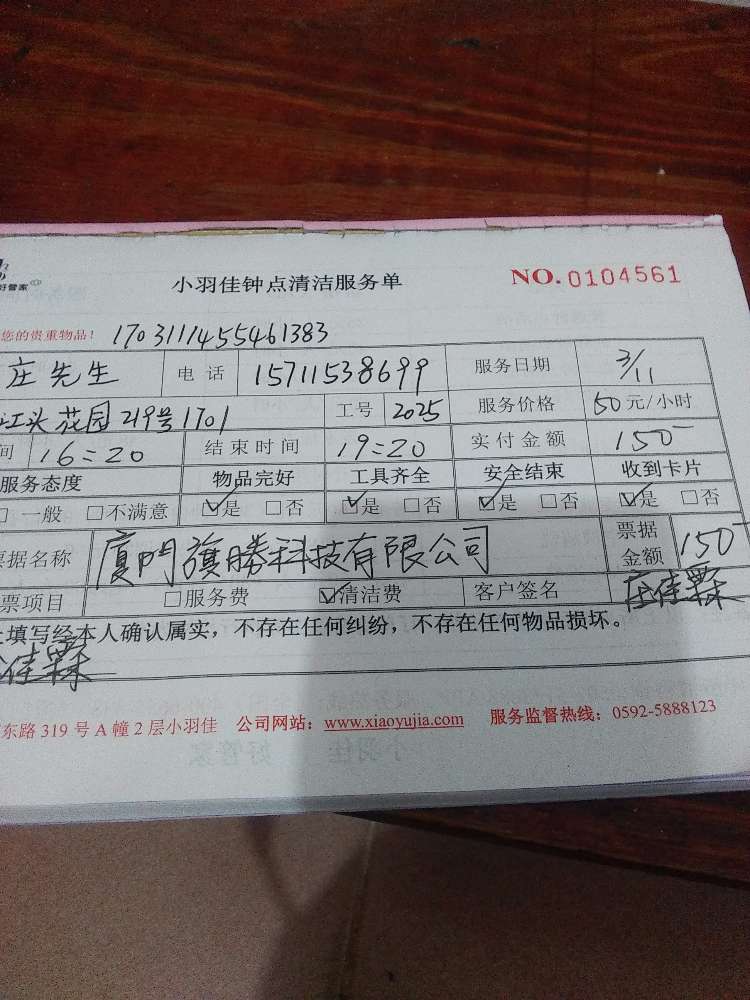 好管家
小羽佳钟点清洁服务单 NO.0104561
您的贵重物品! 1703111455461383
庄先生 电话 15711538699 服务日期 3/11
江头花园219号1701 工号 2025 服务价格 50元/小时
间 16:20 结束时间 19:20 实付金额 150
服务态度 物品完好 工具齐全 安全结束 收到卡片
□一般 □不满意 ☑是 □否 ☑是 □否 ☑是 □否 ☑是 □否
票据名称 廈門旗勝科技有限公司 票据金额 150
票项目 □服务费 ☑清洁费 客户签名 庄佳霖
上填写经本人确认属实，不存在任何纠纷，不存在任何物品损坏。
佳霖
东路319号A幢2层小羽佳 公司网站：www.xiaoyujia.com 服务监督热线：0592-5888123